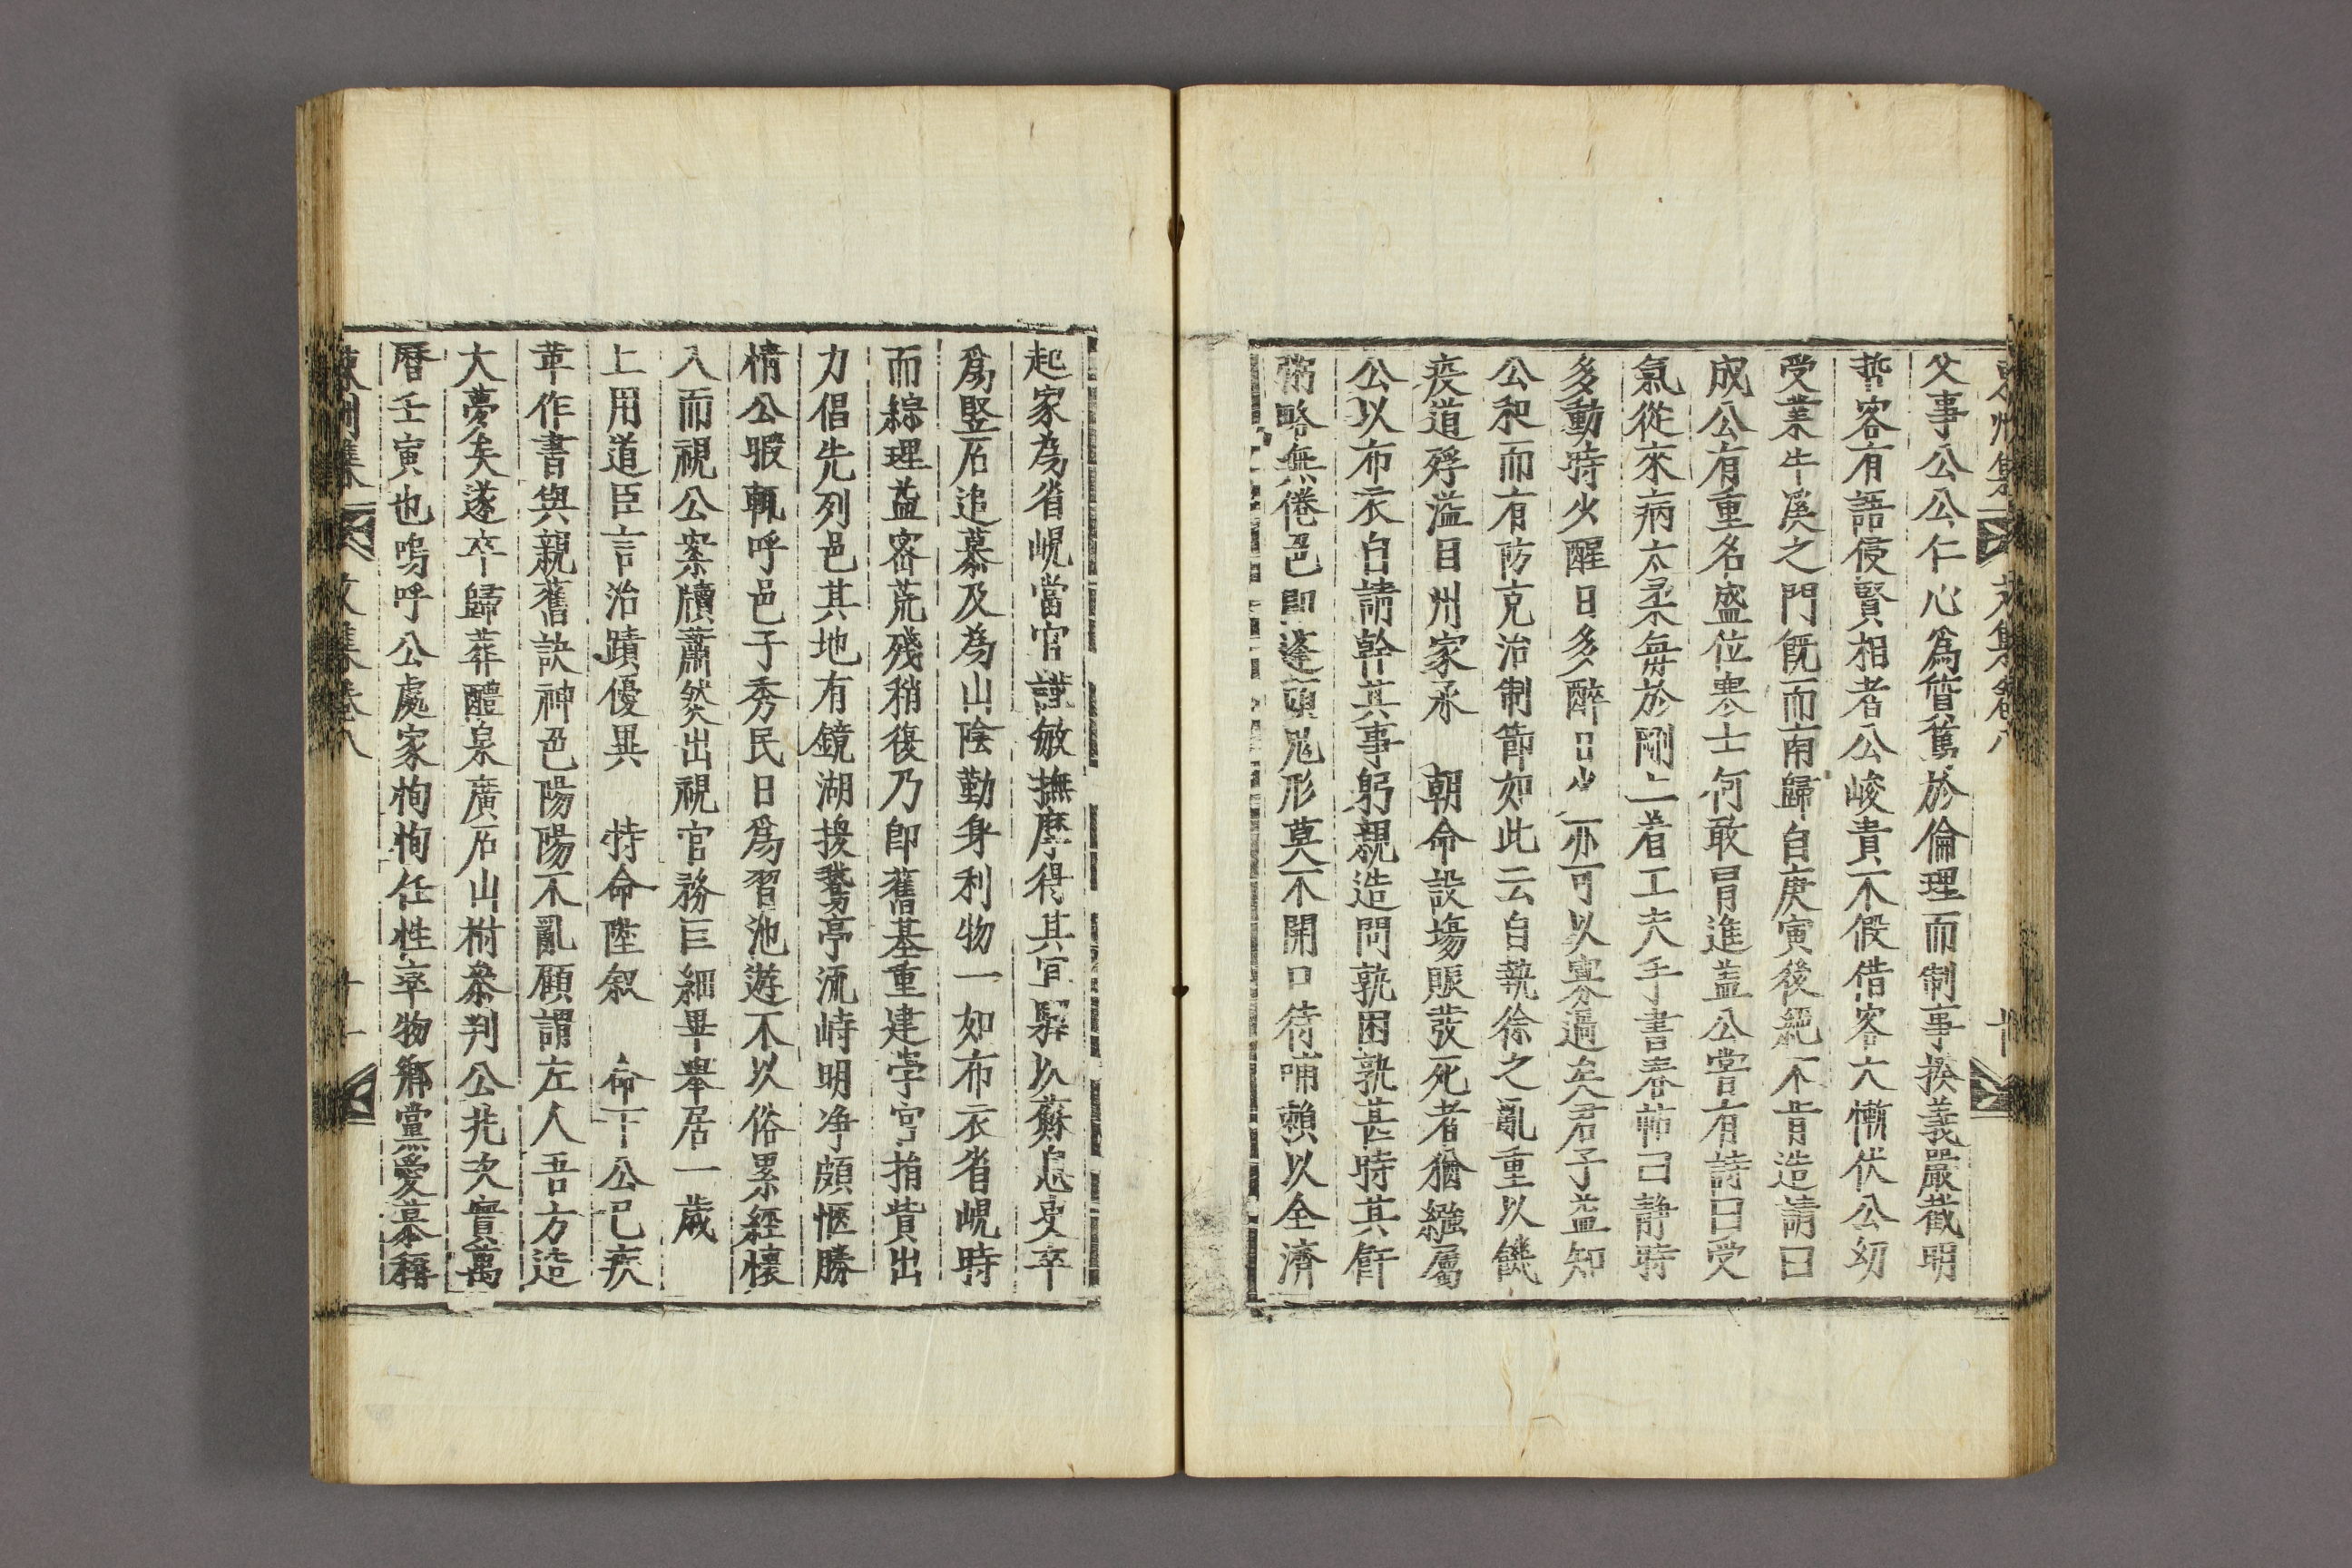 父事公公仁心爲質篤於倫理而制事揆義嚴截明
哲客有語侵賢相者公峻責不假借客大慚伏公幼
受業牛溪之門旣而南歸自庚寅後絕不肯造請曰
成公有重名盛位寒士何敢冒進盖公嘗有詩曰受
氣從來病太柔每於剛上着工夫手書春帖曰靜時
多動時少醒日多醉日少亦可以寡過矣君子益知
公和而有防克治制節如此云自執徐之亂重以饑
疫道殍溢目州家承 朝命設場賑茇死者猶繦屬
公以布衣自請幹其事躬親造問孰困孰甚時其饘
粥略無倦色卽蓬頭鬼形莫不開口待哺賴以全濟
起家爲省峴當官謹敏撫摩得其宜驛以蘇息吏卒
爲竪石追慕及爲山陰勤身利物一如布衣省峴時
而綜理益密荒殘稍復乃卽舊基重建學宮捐貲出
力倡先列邑其地有鏡湖換鵞亭流峙明净頗愜勝
情公暇輒呼邑子秀民日爲習池遊不以俗累經懷
入而視公案牘蕭然出視官務巨細畢舉居一歲
上用道臣言治蹟優異 特命陞叙 命下公已疾
革作書與親舊訣神色陽陽不亂顧謂左人吾方造
大夢矣遂卒歸葬醴泉廣石山祔叅判公兆次實萬
曆壬寅也嗚呼公處家恂恂任性率物鄉黨愛慕稱
東州集 文集卷八 十一